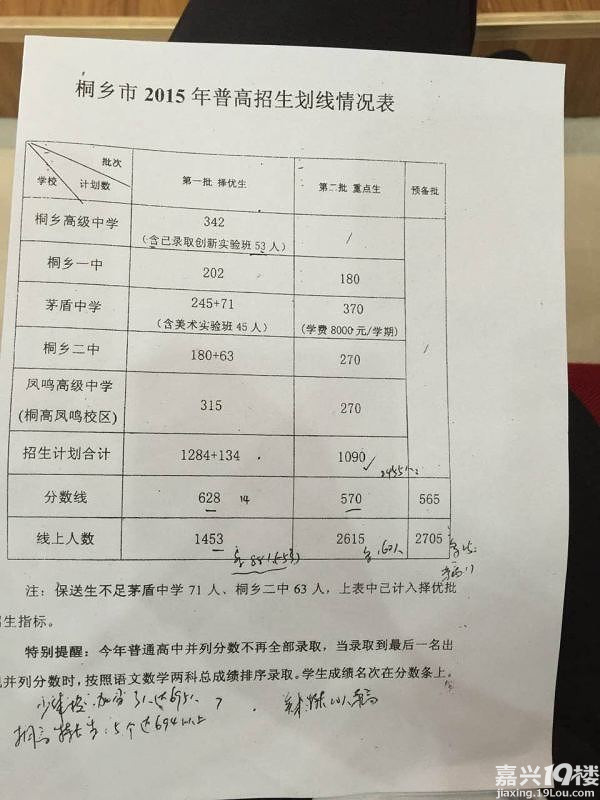 桐乡市 2015 年普高招生划线情况表
批次
学校 计划数 第一批 择优生 第二批 重点生 预备批
桐乡高级中学 342 /
(含已录取创新实验班 53 人)
桐乡一中 202 180
茅盾中学 245+71 370
(含美术实验班 45 人) (学费 8000 元/学期)
桐乡二中 180+63 270 /
凤鸣高级中学 315 270
(桐高凤鸣校区)
招生计划合计 1284+134 1090
分数线 628 14 570 565
线上人数 1453 2615 2705
注: 保送生不足茅盾中学 71 人、桐乡二中 63 人, 上表中已计入择优批
生指标。
特别提醒: 今年普通高中并列分数不再全部录取, 当录取到最后一名出
并列分数时, 按照语文数学两科总成绩排序录取。学生成绩名次在分数条上。
嘉兴19楼
jiaxing.19Lou.com